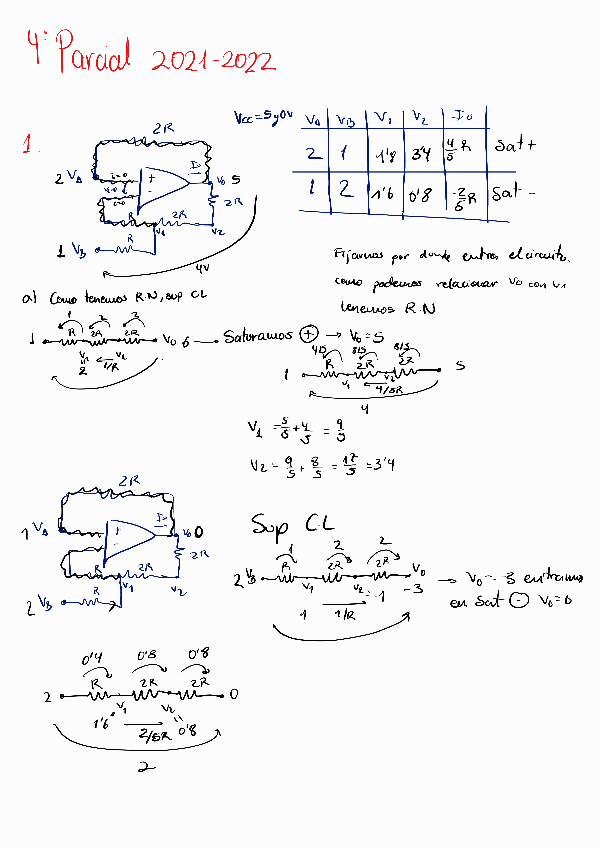 4º Parcial 2021-2022
1.
Vcc=5y0V
VA VB V1 V2 Io
2 1 1'8 3'4 4/5 R Sat +
1 2 1'6 0'8 -2/5R Sat -
2R
2 VA
i=0
+
-
Io
V0 5
2R
R
2R
V1
V2
1 VB
R
4V
Fijarnos por donde entra el circuito,
como podemos relacionar V0 con V1
tenemos R.N
a) Como tenemos R.N, sup CL
1 2 2
1 R 2R 2R V0 6 → Saturamos ⊕ → V0=5
V1 V2
2 1/R
4/5 8/5 8/5
1 R 2R 2R 5
V1 V2
4/5R
4
V1 = 5/5 + 4/5 = 9/5
V2 = 9/5 + 8/5 = 17/5 = 3'4
2R
1 VA
+
-
Io
V0 0
2R
R
2R
V1
V2
2 VB
R
Sup C.L
1 2 2
2 VB R 2R 2R V0
V1 V2 = -1 -3
1 1/R
→ V0 = -3 entramos
en Sat ⊖ V0=0
0'4 0'8 0'8
2 R 2R 2R 0
V1 V2
1'6 2/5R 0'8
2